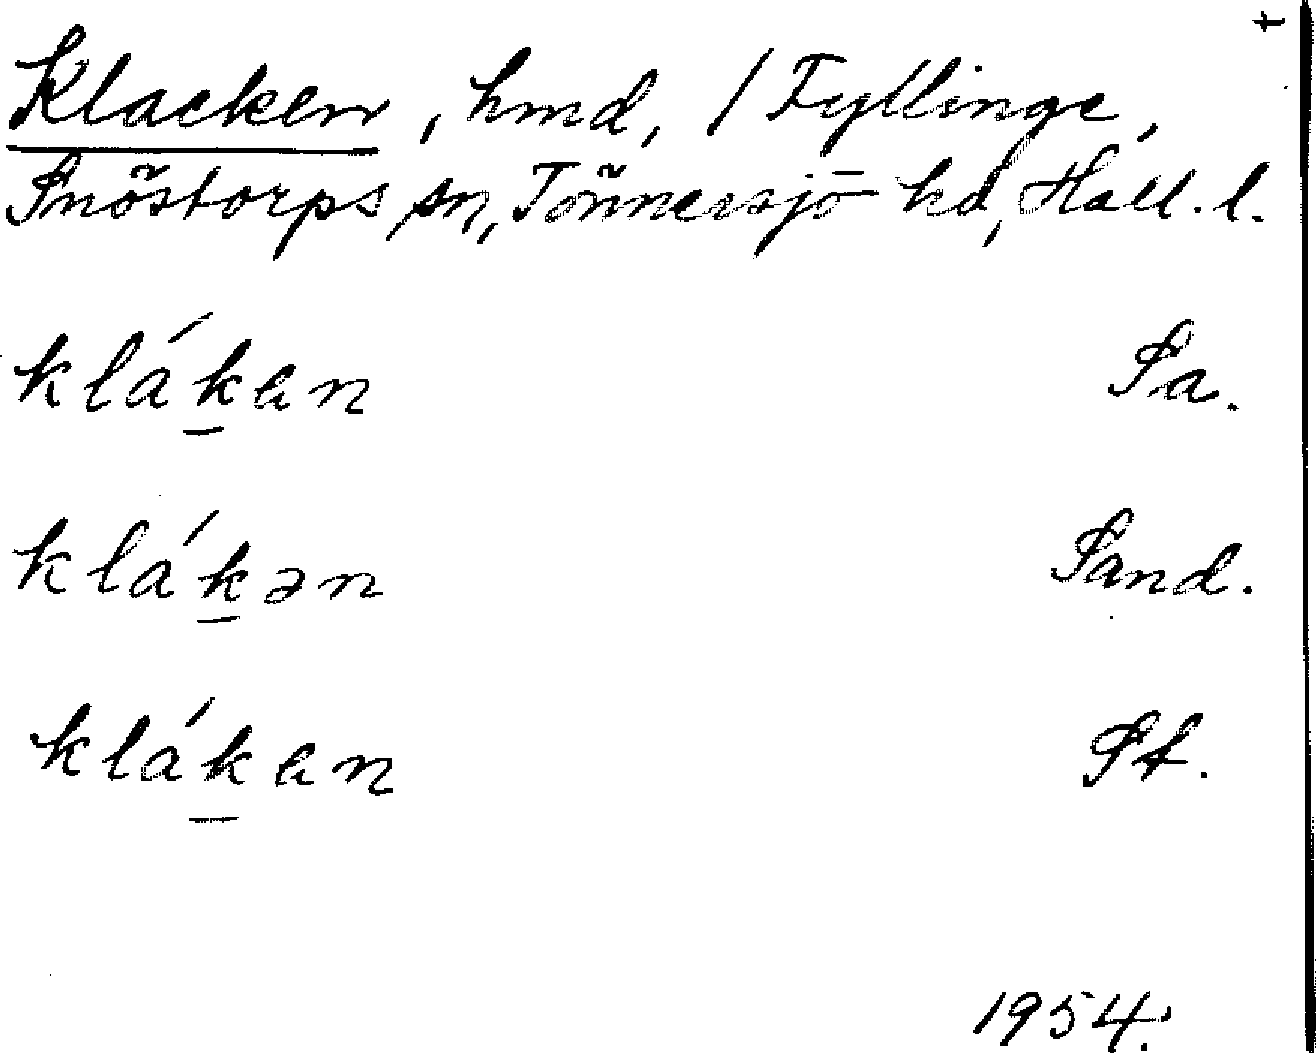 t
Klacken, hmd, / Fyllinge,
Snöstorps sn, Tönnersjö hd, Hall. l.
klák̲en Sa.
klák̲ən Sand.
klák̲en St.
1954.